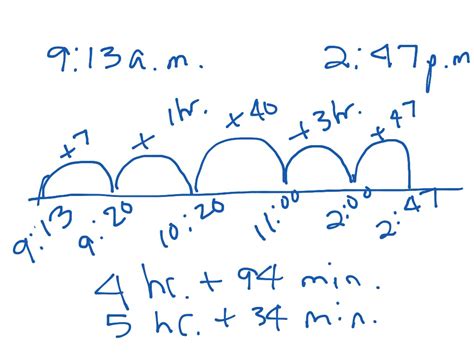 9:13 a.m. 2:47 p.m
+7 + 1hr. +40 +3hr. +47
9:13 9:20 10:20 11:00 2:00 2:47
4 hr. + 94 min.
5 hr. + 34 min.